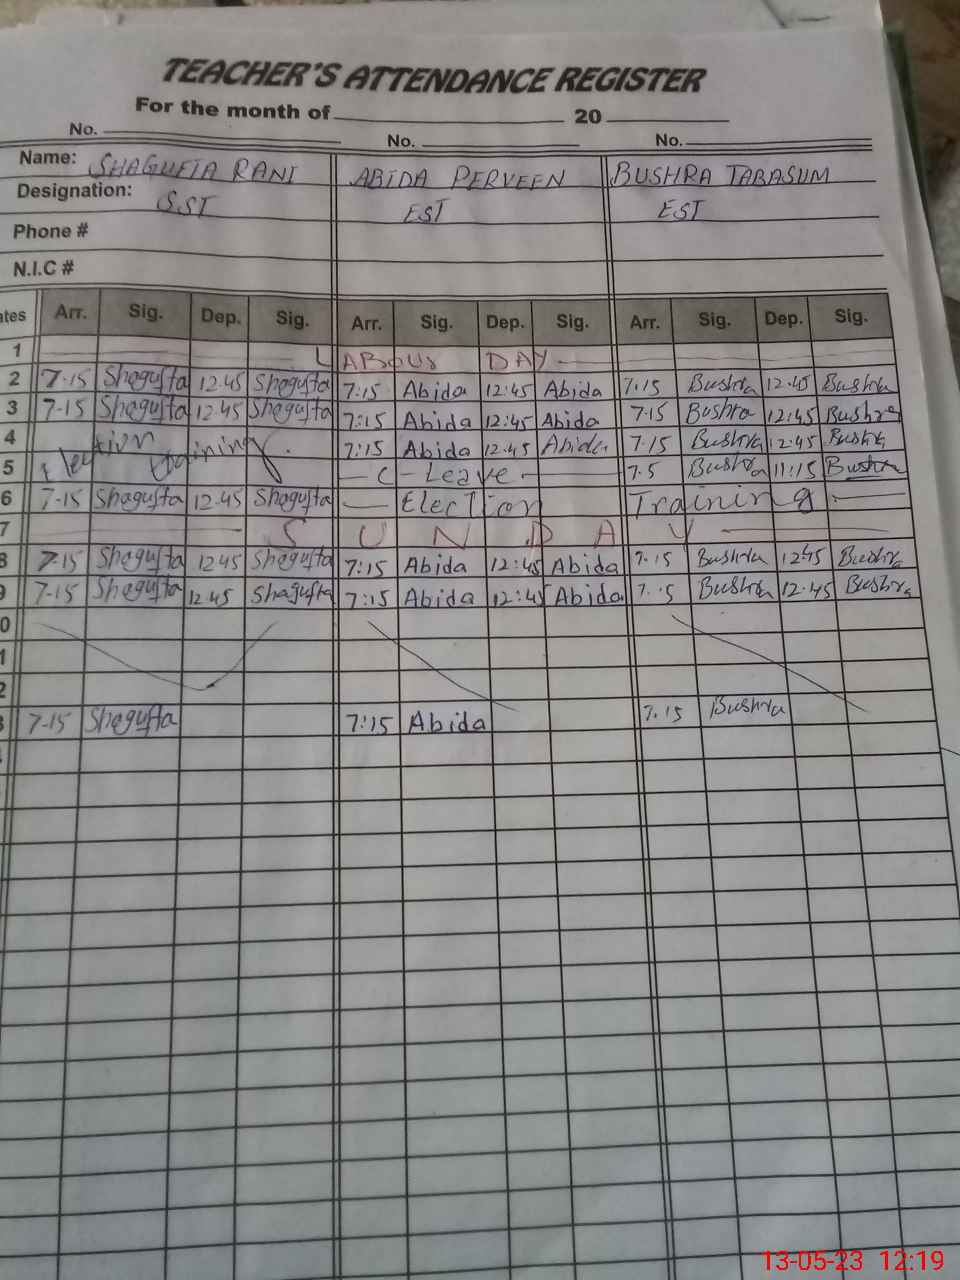 TEACHER'S ATTENDANCE REGISTER
For the month of 20
No. No. No.
Name: SHAGUFTA RANI ABIDA PERVEEN BUSHRA TABASUM
Designation: SST EST EST
Phone #
N.I.C #
ates Arr. Sig. Dep. Sig. Arr. Sig. Dep. Sig. Arr. Sig. Dep. Sig.
1 LABOUR DAY
2 7-15 Shagufta 12.45 Shagufta 7:15 Abida 12:45 Abida 7.15 Bushra 12.45 Bushra
3 7-15 Shagufta 12.45 Shagufta 7:15 Abida 12:45 Abida 7.15 Bushra 12.45 Bushra
4 Election training. 7:15 Abida 12.45 Abida 7.15 Bushra 12.45 Bushra
5 C-Leave 7.5 Bushra 11:15 Bushra
6 7-15 Shagufta 12.45 Shagufta Election Training
7 SUNDAY
8 7-15 Shagufta 12.45 Shagufta 7:15 Abida 12:45 Abida 7.15 Bushra 12.45 Bushra
9 7-15 Shagufta 12.45 Shagufta 7:15 Abida 12:45 Abida Bushra 12.45 Bushra
0
1
2
3 7-15 Shagufta 7:15 Abida 7.15 Bushra
13-05-23 12:19